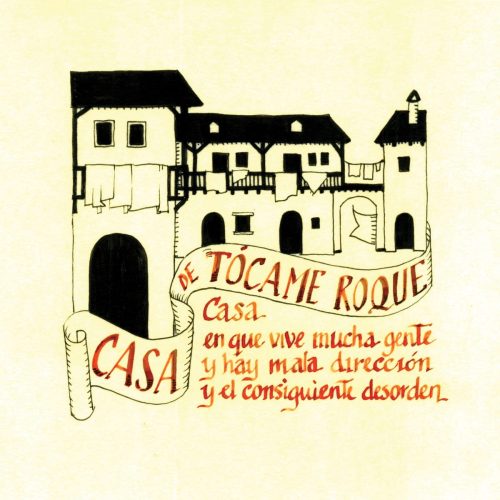 CASA DE TÓCAME ROQUE
Casa
en que vive mucha gente
y hay mala dirección
y el consiguiente desorden